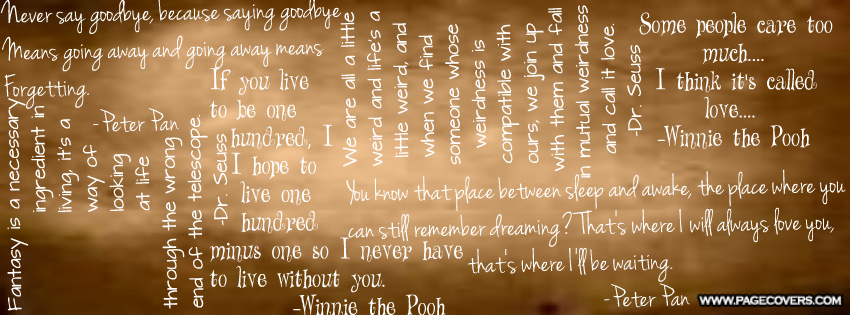 Never say goodbye, because saying goodbye
Means going away and going away means
Forgetting.
-Peter Pan
Fantasy is a necessary
ingredient in
living, it's a
way of
looking
at life
through the wrong
end of the telescope.
-Dr. Seuss
If you live
to be one
hundred, I
I hope to
live one
hundred
minus one so I never have
to live without you.
-Winnie the Pooh
We are all a little
weird and life's a
little weird, and
when we find
someone whose
weirdness is
compatible with
ours, we join up
with them and fall
in mutual weirdness
and call it love.
-Dr. Seuss
Some people care too
much....
I think it's called
love....
-Winnie the Pooh
You know that place between sleep and awake, the place where you
can still remember dreaming? That's where I will always love you,
that's where I'll be waiting.
-Peter Pan
WWW.PAGECOVERS.COM